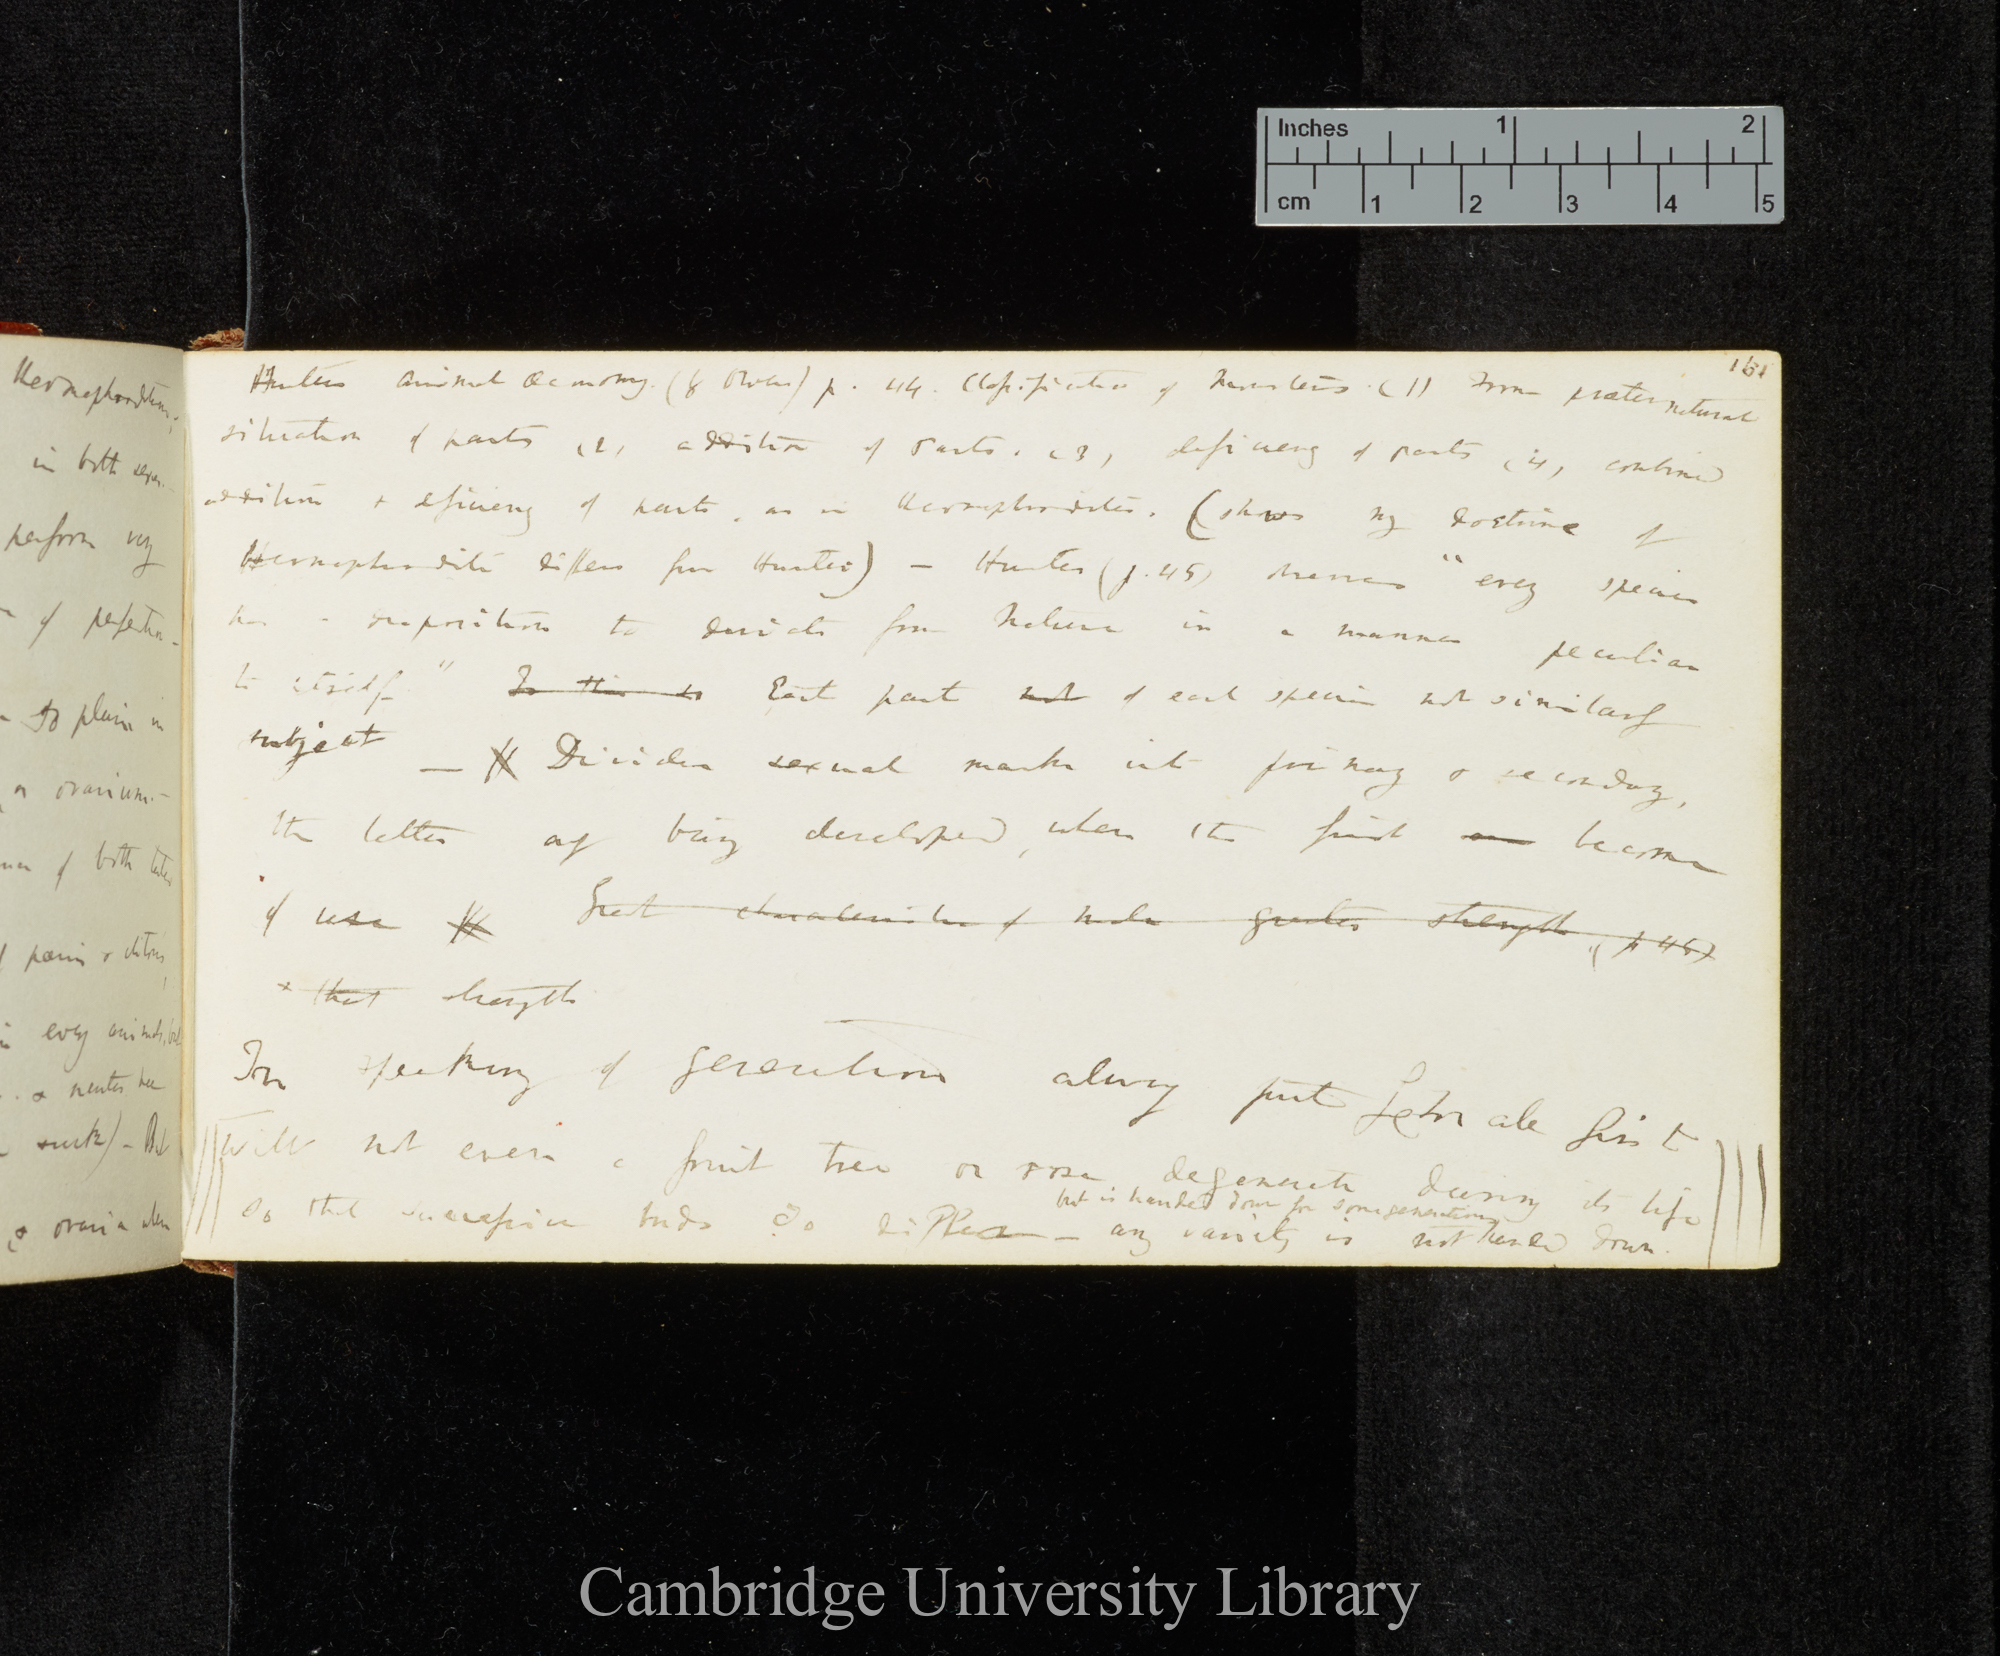 161
Hunters animal Œconomy. (by Owen) p. 44. Classification of Monsters. (1) From præternatural
situation of parts (2) addition of parts. (3) deficiency of parts (4) combined
addition & deficiency of parts, as in Hermaphrodites. (shows my doctrine of
Hermaphrodite differs from Hunter) — Hunter (p. 45) observes "every species
has a disposition to deviate from Nature in a manner peculiar
to itself." In this is Each part not of each species not similarly
subject — Divides sexual marks into primary & secondary,
the latter only being developed, when the first are become
of use Great characteristic of male greater strength, (p 45)
& that strength
In speaking of generation always put female first
Will not even a fruit tree or rose degenerate during its life
but is handed down for some generations
So that successive buds do differ — any variety is not handed down.
Hermaphroditism;
in both sexes.
perform very
of perfection
plain in
ovarium.
of both testes
penis & clitoris,
in every animal, but
& neuter bee
suck) — But
& ovaria when
Inches 1 2
cm 1 2 3 4 5
Cambridge University Library